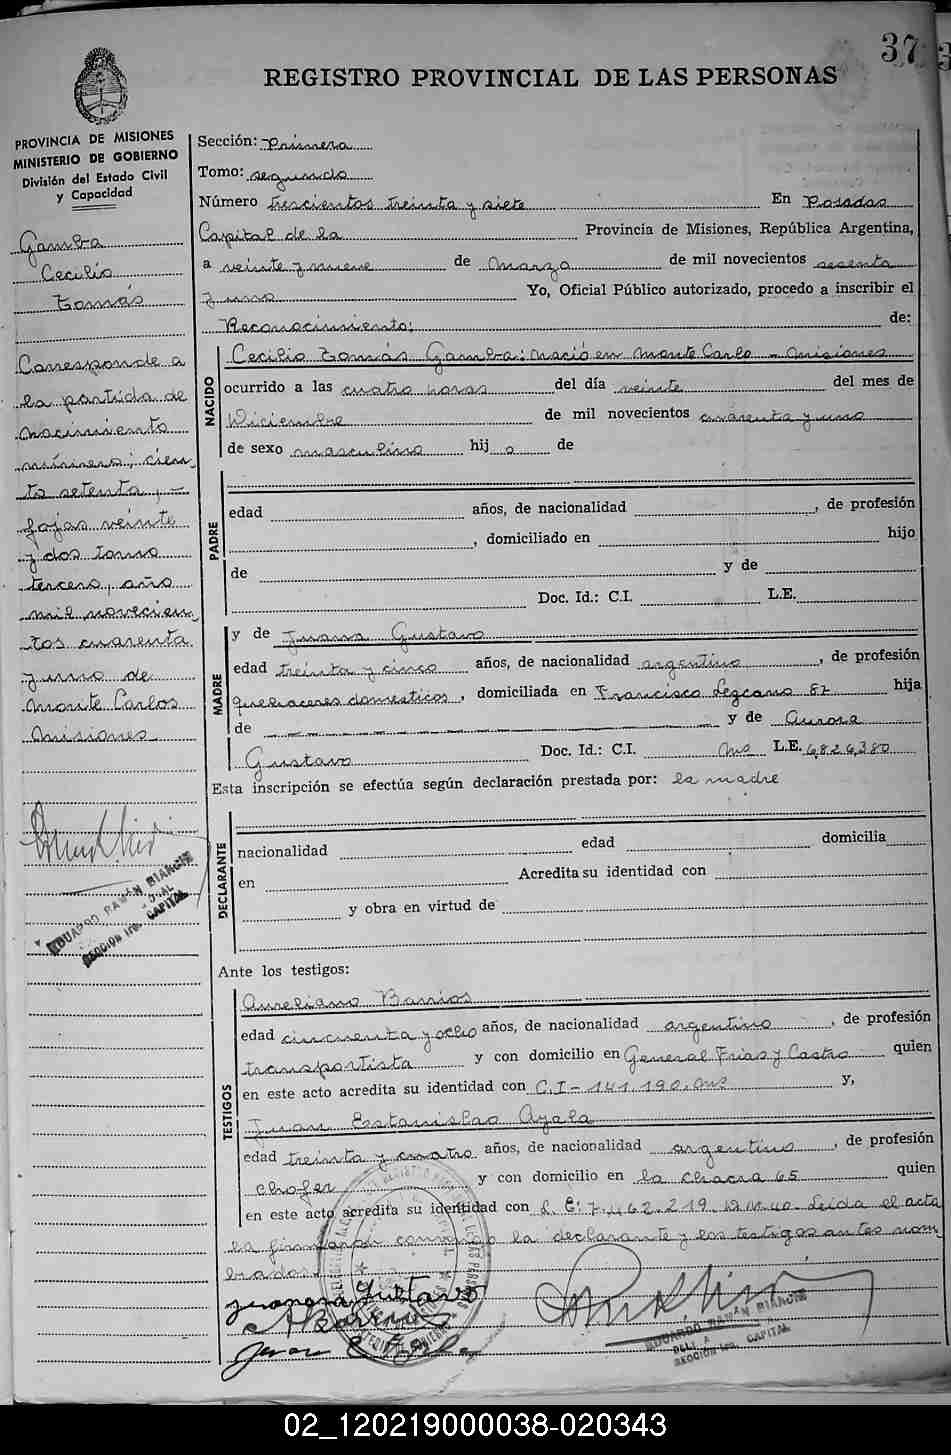 37
REGISTRO PROVINCIAL DE LAS PERSONAS
PROVINCIA DE MISIONES
MINISTERIO DE GOBIERNO
División del Estado Civil
y Capacidad
Gamba
Cecilio
Tomás
Corresponde a
la partida de
nacimiento
número: cien
to setenta, -
fojas veinte
y dos tomo
tercero, año
mil novecien
tos cuarenta
y uno de
Monte Carlos
Misiones
EDUARDO RAMÓN BIANCHI
SECCIÓN 1ra. CAPITAL
Sección: Primera
Tomo: segundo
Número trescientos treinta y siete En Posadas
Capital de la Provincia de Misiones, República Argentina,
a veinte y nueve de Marzo de mil novecientos sesenta
y uno Yo, Oficial Público autorizado, procedo a inscribir el
Reconocimiento: de:
NACIDO
Cecilio Tomás Gamba: nació en Monte Carlo - Misiones
ocurrido a las cuatro horas del día veinte del mes de
Diciembre de mil novecientos cuarenta y uno
de sexo masculino hij o de
PADRE
edad años, de nacionalidad , de profesión
, domiciliado en hijo
de y de
Doc. Id.: C.I. L.E.
MADRE
y de Juana Gustavo
edad treinta y cinco años, de nacionalidad argentina , de profesión
quehaceres domesticos , domiciliada en Francisco Lezcano 82 hija
de y de Aurora
Gustavo Doc. Id.: C.I. Ms L.E. 6,826,380
Esta inscripción se efectúa según declaración prestada por: la madre
DECLARANTE
nacionalidad edad domicilia
en Acredita su identidad con
y obra en virtud de
Ante los testigos:
TESTIGOS
Aureliano Barrios
edad cincuenta y ocho años, de nacionalidad argentino , de profesión
transportista y con domicilio en General Frias y Castro quien
en este acto acredita su identidad con C.I - 141.190. Ms y,
Juan Estanislao Ayala
edad treinta y cuatro años, de nacionalidad argentino , de profesión
chofer y con domicilio en la Chacra 65 quien
en este acto acredita su identidad con L.E: 7.462.219. D.M.40. Leida el acta
la firmaron conmigo la declarante y los testigos antes nom
brados.
Juana Gustavo
A Barrios
Juan E Ayala
EDUARDO RAMÓN BIANCHI
SECCIÓN 1ra. CAPITAL
02_120219000038-020343